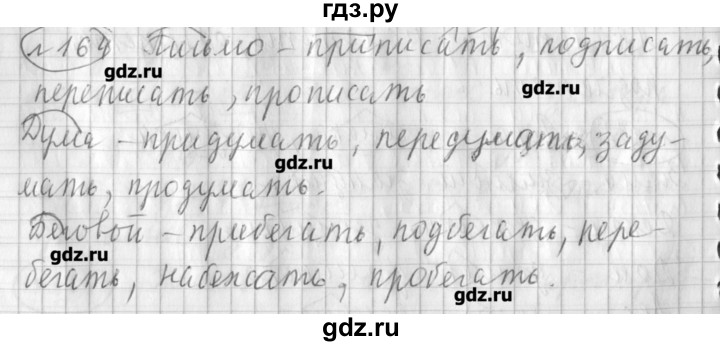 гдз.ру
№ 164 Письмо – приписать, подписать,
gdz.ru
переписать, прописать
gdz.ru
Дума – придумать, передумать, заду-
gdz.ru
мать, продумать.
Беговой – прибегать, подбегать, пере-
gdz.ru
бегать, набежать, пробегать.
gdz.ru
gdz.ru